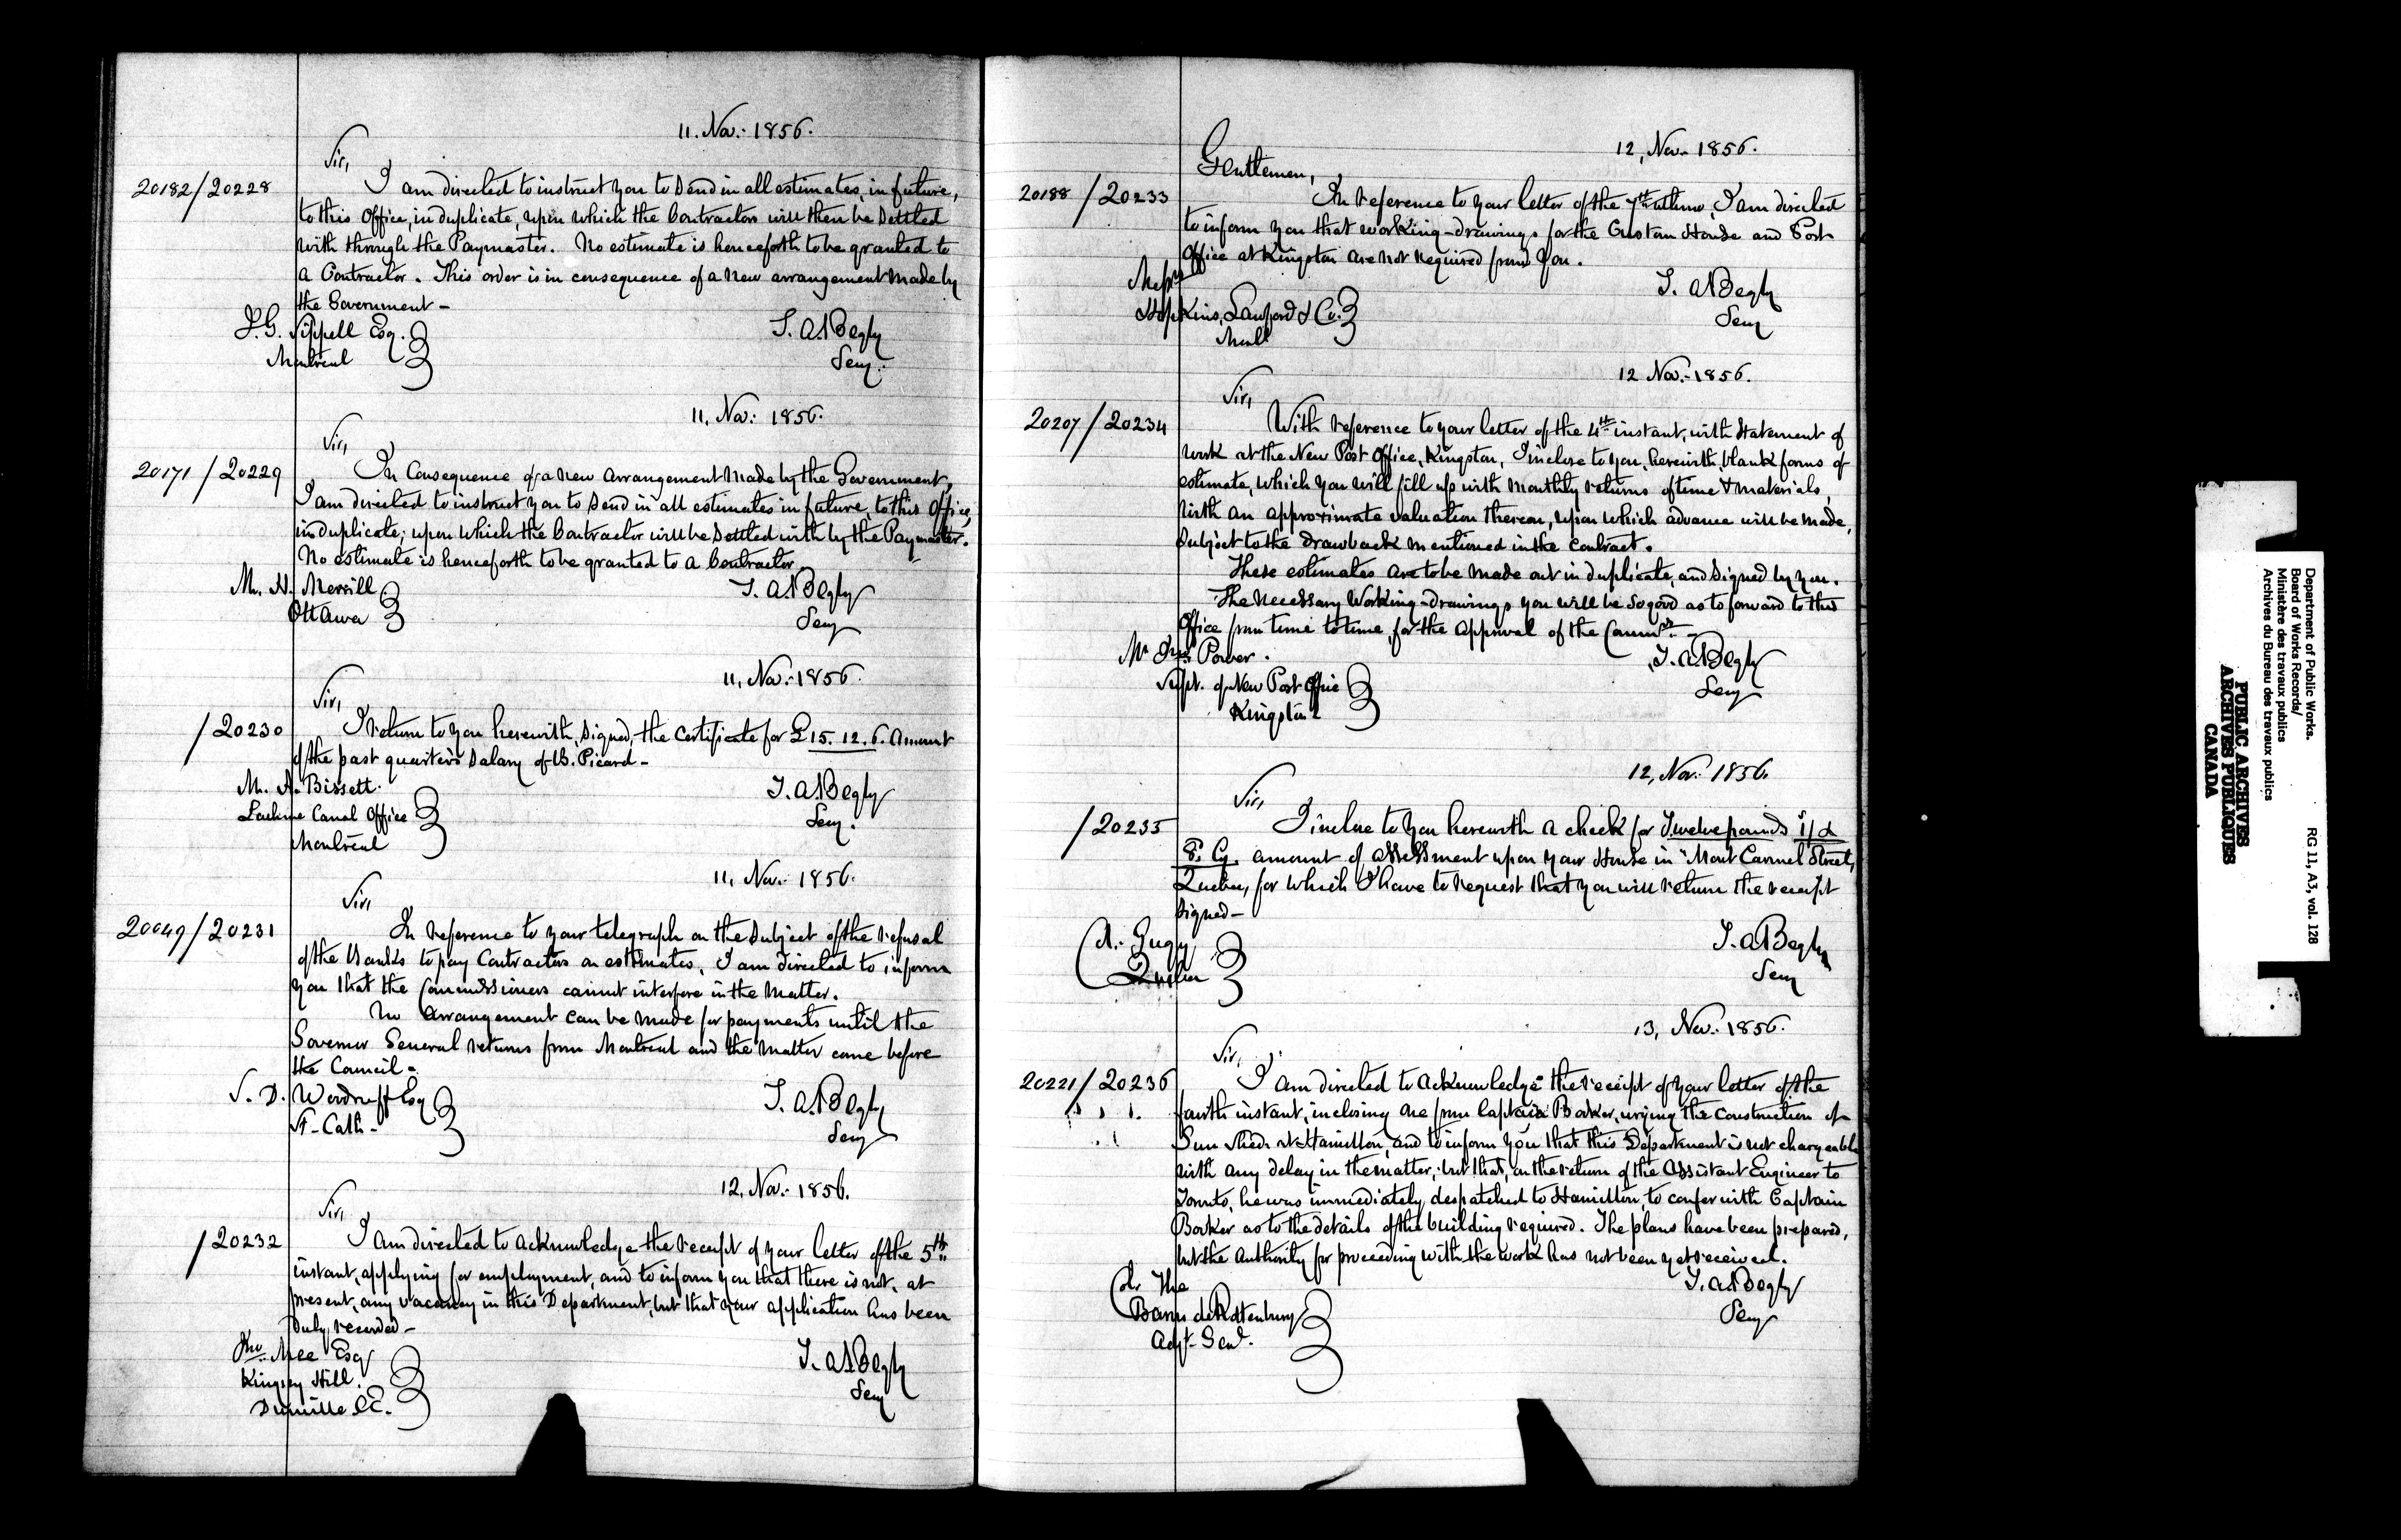 11. Nov: 1856.
Sir,
20182/20228
I am directed to instruct you to send in all estimates, in future,
to this Office, in duplicate, upon which the Contractors will then be settled
with through the Paymaster. No estimate is henceforth to be granted to
a Contractor. This order is in consequence of a new arrangement made by
the Government -
J. G. Sippell Esq.
Montreal
T. A. Begly
Secy.
11, Nov: 1856.
Sir,
20171 / 20229
In Consequence of a new Arrangement made by the Government,
I am directed to instruct you to send in all estimates in future, to this Office,
in duplicate; upon which the Contractor will be settled with by the Paymaster.
No estimate is henceforth to be granted to a Contractor.
Mr. H. Merrill
Ottawa
T. A. Begly
Secy
11, Nov: 1856.
Sir,
/ 20230
I return to you herewith, signed, the Certificate for £15. 12. 6. Amount
of the past quarter's Salary of B. Picard -
Mr. A. Bissett.
Lachine Canal Office
Montreal
T. A. Begly
Secy.
11, Nov: 1856.
Sir,
20049/20231
In reference to your telegraph on the subject of the refusal
of the Banks to pay Contractors on estimates, I am directed to inform
you that the Commissioners cannot interfere in the matter.
No Arrangement can be made for payments until the
Governor General returns from Montreal and the matter come before
the Council -
S. D. Woodruff Esq
St- Cath -
T. A. Begly
Secy
12, Nov: 1856.
Sir,
/ 20232
I am directed to acknowledge the receipt of your letter of the 5th
instant, applying for employment, and to inform you that there is not, at
present, any vacancy in this Department, but that your application has been
duly recorded -
Jno. Mee Esq
Kingsey Hill.
C.E.
T. A. Begly
Secy
12, Nov. 1856.
Gentlemen,
20188 / 20233
In reference to your letter of the 7th ultimo, I am directed
to inform you that working-drawings for the Custom House and Post
Office at Kingston are not required from you.
Messrs
Hopkins, Lawford & Co.
Monl
T. A. Begly
Secy
12 Nov: 1856.
Sir,
20207 / 20234
With reference to your letter of the 4th instant, with Statement of
work at the New Post Office, Kingston, I inclose to you, herewith, blank forms of
estimate, which you will fill up with monthly returns of time & materials,
with an approximate valuation thereon, upon which advance will be made,
subject to the drawback mentioned in the contract.
These estimates are to be made out in duplicate, and signed by you.
The necessary Working-drawings you will be so good as to forward to this
Office from time to time, for the approval of the Commrs. -
Mr Power.
Supt. of New Post Office
Kingston
T. A. Begly
Secy
12, Nov: 1856.
Sir,
/ 20235
I inclose to you herewith a check for Twelve pounds
Cy. amount of assessment upon your House in "Mont Carmel Street,
Quebec, for which I have to request that you will return the receipt
signed -
A. Gugy
Quebec
T. A. Begly
Secy
13, Nov: 1856.
Sir,
20221 / 20236
I am directed to acknowledge the receipt of your letter of the
fourth instant, inclosing one from Captain Barker, urging the construction of
Gun Sheds at Hamilton, and to inform you that this Department is not chargeable
with any delay in the matter; but that, on the return of the Assistant Engineer to
Toronto, he was immediately despatched to Hamilton, to confer with Captain
Barker as to the details of the building required. The plans have been prepared,
but the Authority for proceeding with the work has not been yet received.
Col. The
Baron de Rottenburg
Adjt. Genl.
T. A. Begly
Secy
Department of Public Works.
Board of Works Records/
Ministère des travaux publics
Archives du Bureau des travaux publics
RG 11, A3, vol. 128
PUBLIC ARCHIVES
ARCHIVES PUBLIQUES
CANADA